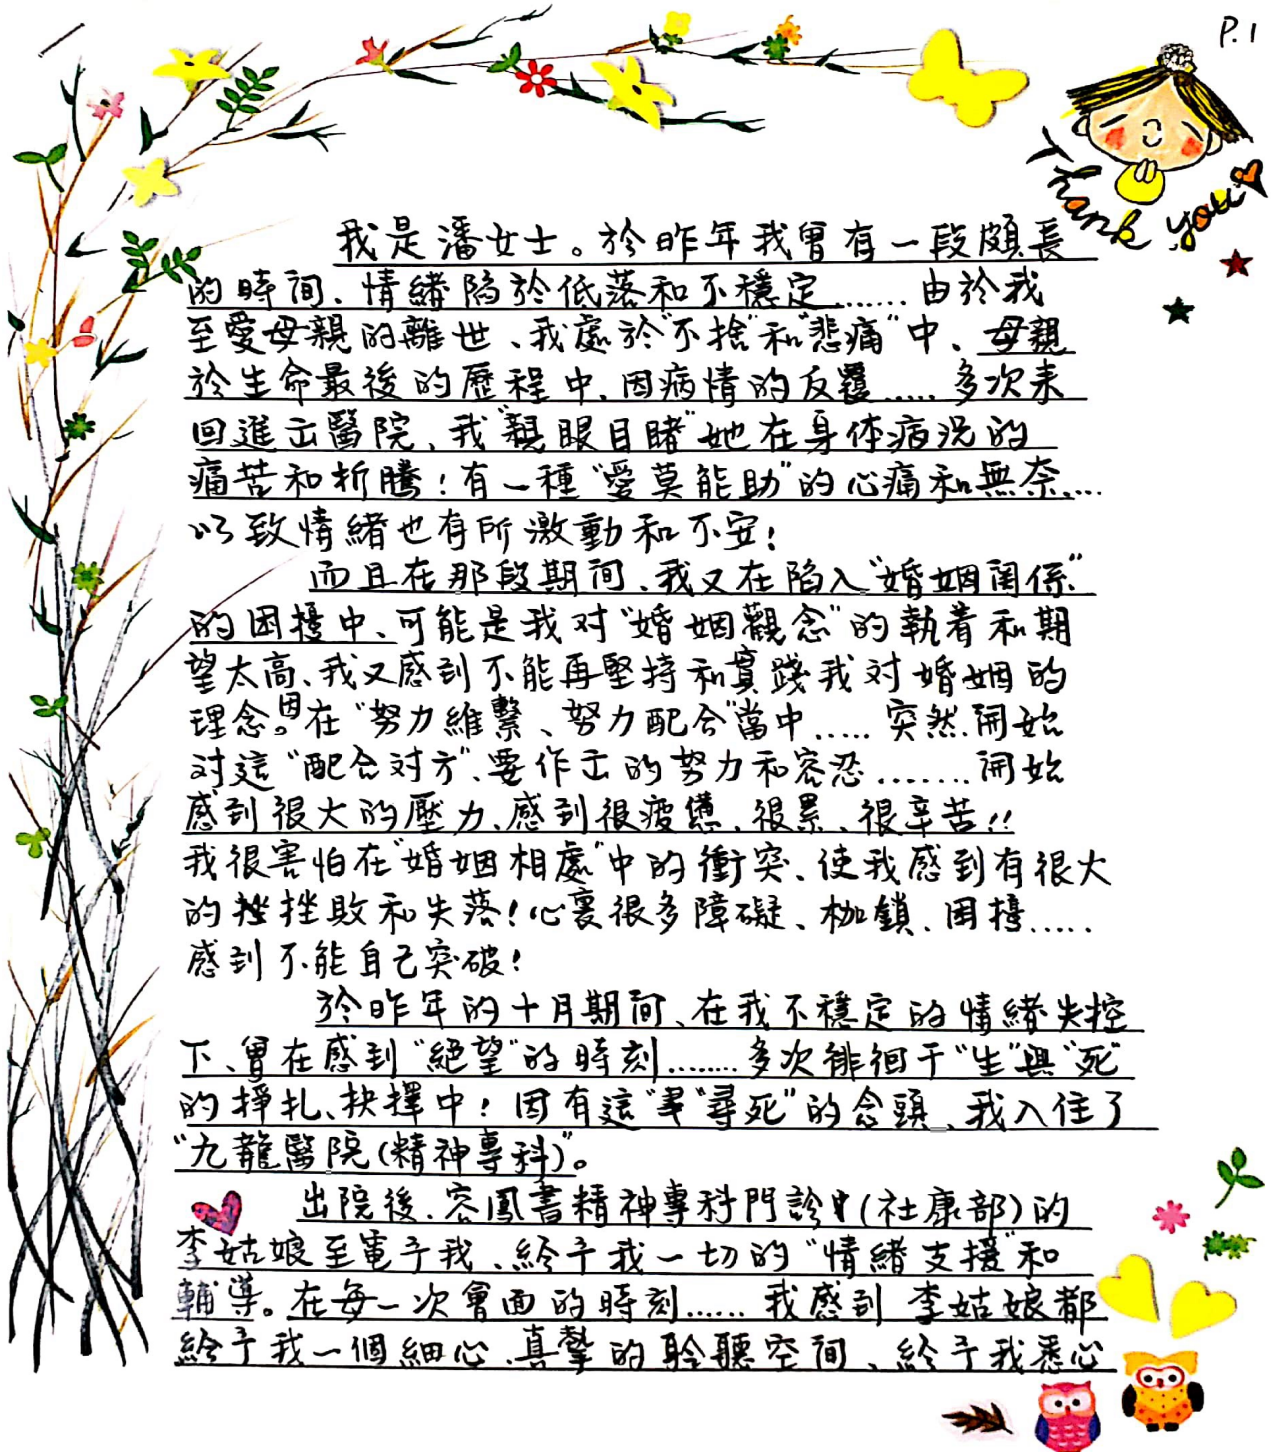 P.1
Thank you
我是潘女士。於昨年我曾有一段頗長
的時间、情緒陷於低落和不穩定.......由於我
至愛母親的離世、我處於"不捨"和"悲痛"中、母親
於生命最後的歷程中、因病情的反覆.....多次来
回進出醫院、我"親眼目睹"她在身体病況的
痛苦和折騰！有一種"愛莫能助"的心痛和無奈....
以致情緒也有所激動和不安！
而且在那段期间、我又在陷入"婚姻関係"
的困擾中、可能是我对"婚姻觀念"的執着和期
望太高、我又感到不能再堅持和實踐我对婚姻的
理念。因在"努力維繫、努力配合"當中.....突然開始
对這"配合对方"、要作出的努力和容忍.......開始
感到很大的壓力、感到很疲憊、很累、很辛苦!!
我很害怕在"婚姻相處"中的衝突、使我感到有很大
的挫敗和失落！心裏很多障礙、枷鎖、困擾.....
感到不能自己突破！
於昨年的十月期间、在我不穩定的情緒失控
下、曾在感到"絕望"的時刻.......多次徘徊于"生"與"死"
的掙扎、抉擇中！因有這"尋死"的念頭、我入住了
"九龍醫院(精神專科)"。
出院後、容鳳書精神專科門診(社康部)的
李姑娘至電予我、給予我一切的"情緒支援"和
輔導。在每一次會面的時刻......我感到李姑娘都
給予我一個細心、真摯的聆聽空间、給予我悉心